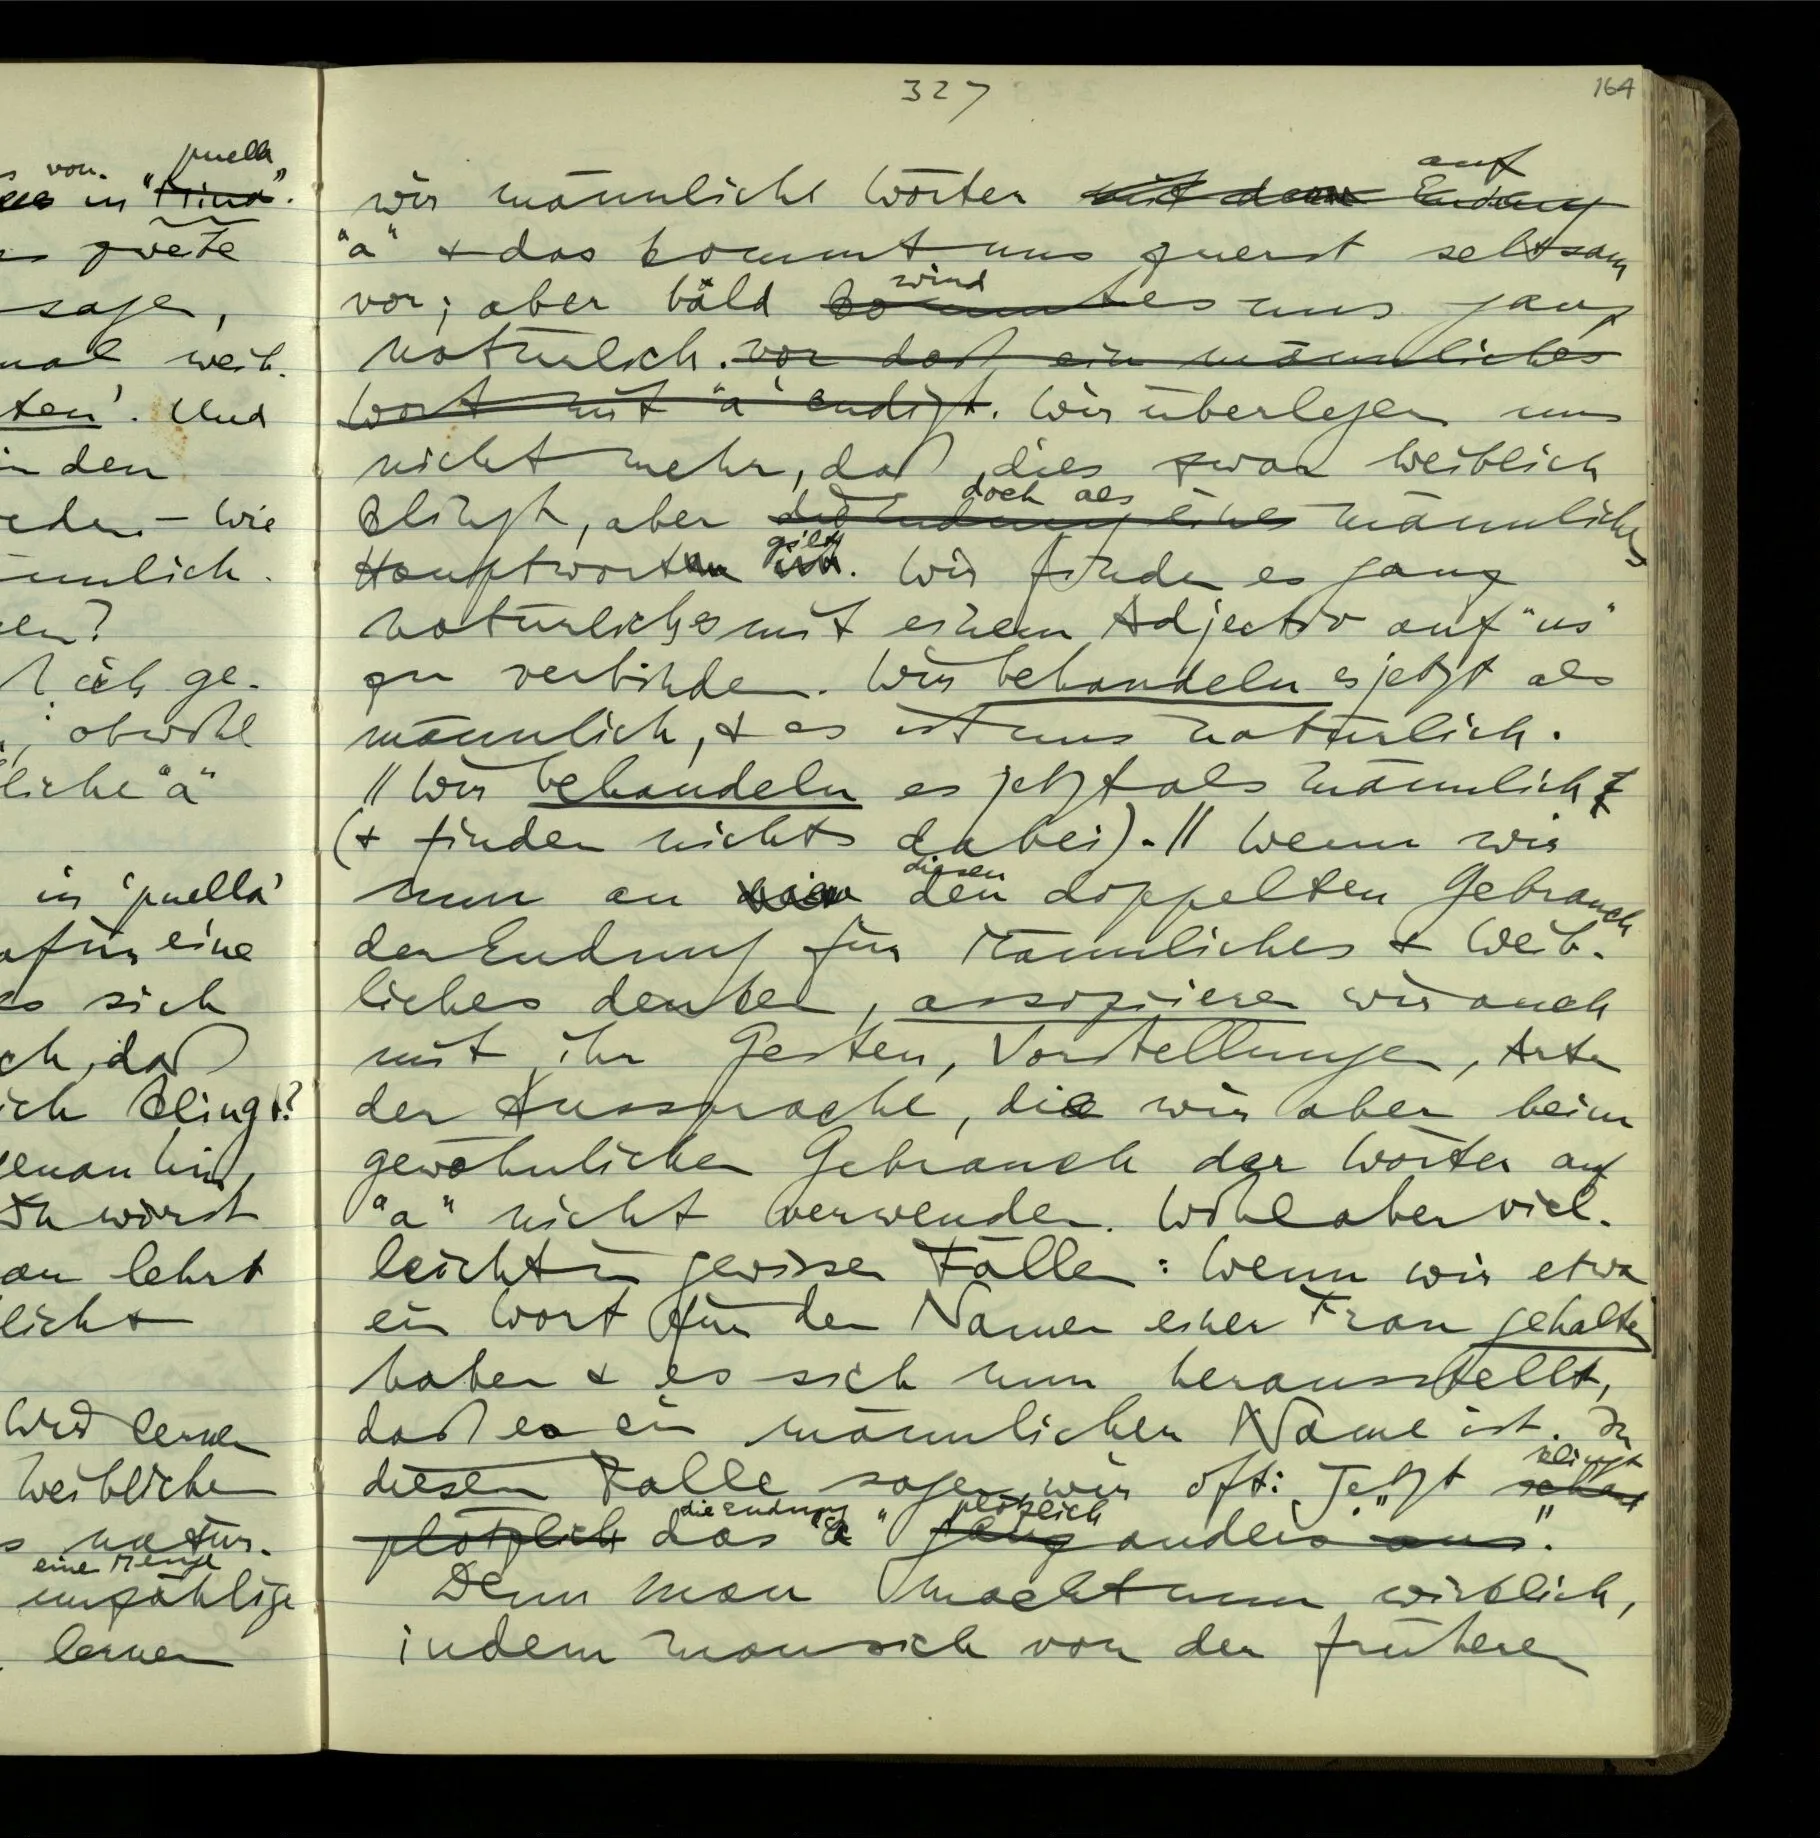 von. puella
in "Mind".
zweite
sage,
mal weib-
ten'. Und
in den
reden. – Wie
männlich.
en?
ich ge-
; obwohl
liche "a"
in 'puella'
dafür eine
es sich
ch, daß
ich klingt?
genau hin,
Du wirst
an lehrt
licht
Wird lernen
Weiblichen
s natür-
eine Menge
unzählige
lernen
327
164
auf
wir männliche Wörter mit dem Endung
"a" & das kommt uns zuerst seltsam
wird
vor; aber bald kommt es uns ganz
natürlich. vor daß ein männliches
Wort mit "a" endigt. Wir überlegen uns
nicht mehr, daß dies zwar weiblich
doch als
klingt, aber die Endung eines männliches
gilt
Hauptwort ist. Wir finden es ganz
natürlich es mit einem Adjectiv auf "us"
zu verbinden. Wir behandeln es jetzt als
männlich, & es ist uns natürlich.
// Wir behandeln es jetzt als männlich
(& finden nichts dabei). // Wenn wir
diesen
nun an den doppelten Gebrauch
der Endung für Männliches & Weib-
liches denken, assoziieren wir auch
mit ihr Gesten, Vorstellungen, Arten
der Aussprache, die wir aber beim
gewöhnlichen Gebrauch der Wörter auf
"a" nicht verwenden. Wohl aber viel-
leicht in gewissen Fällen: Wenn wir etwa
ein Wort für den Namen einer Frau gehalten
haben & es sich nun herausstellt,
daß es ein männlicher Name ist. In
klingt
diesem Falle sagen wir oft: "Jetzt schaut
die Endung plötzlich
plötzlich das "a" ganz anders aus".
Denn man macht nun wirklich,
indem man sich von der früheren